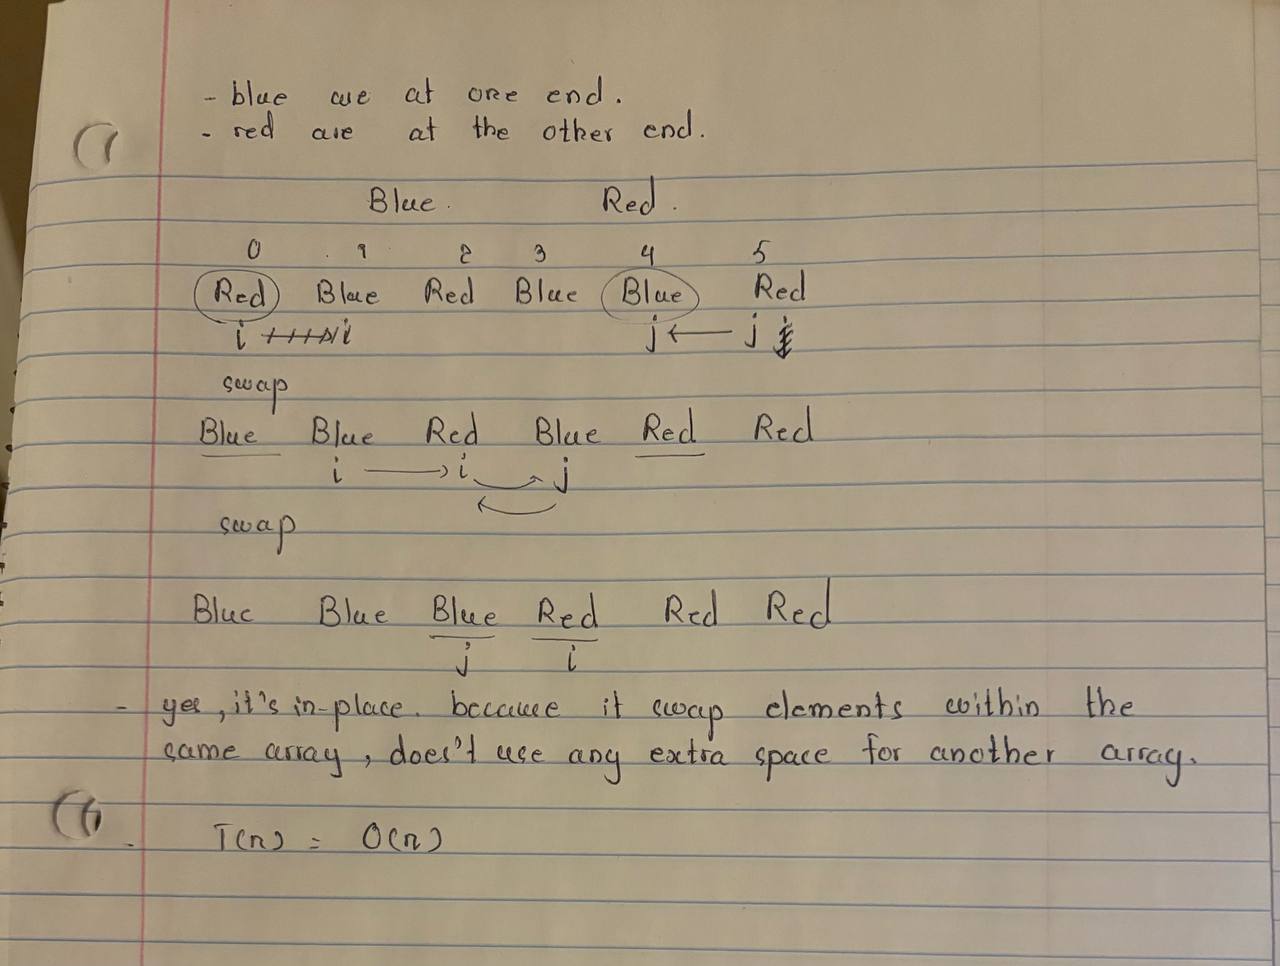 - blue are at one end.
- red are at the other end.
Blue. Red.
0 1 2 3 4 5
Red Blue Red Blue Blue Red
i i j j
swap
Blue Blue Red Blue Red Red
i i j
swap
Blue Blue Blue Red Red Red
j i
- yes, it's in-place. because it swap elements within the
same array, does't use any extra space for another array.
- T(n) = O(n)